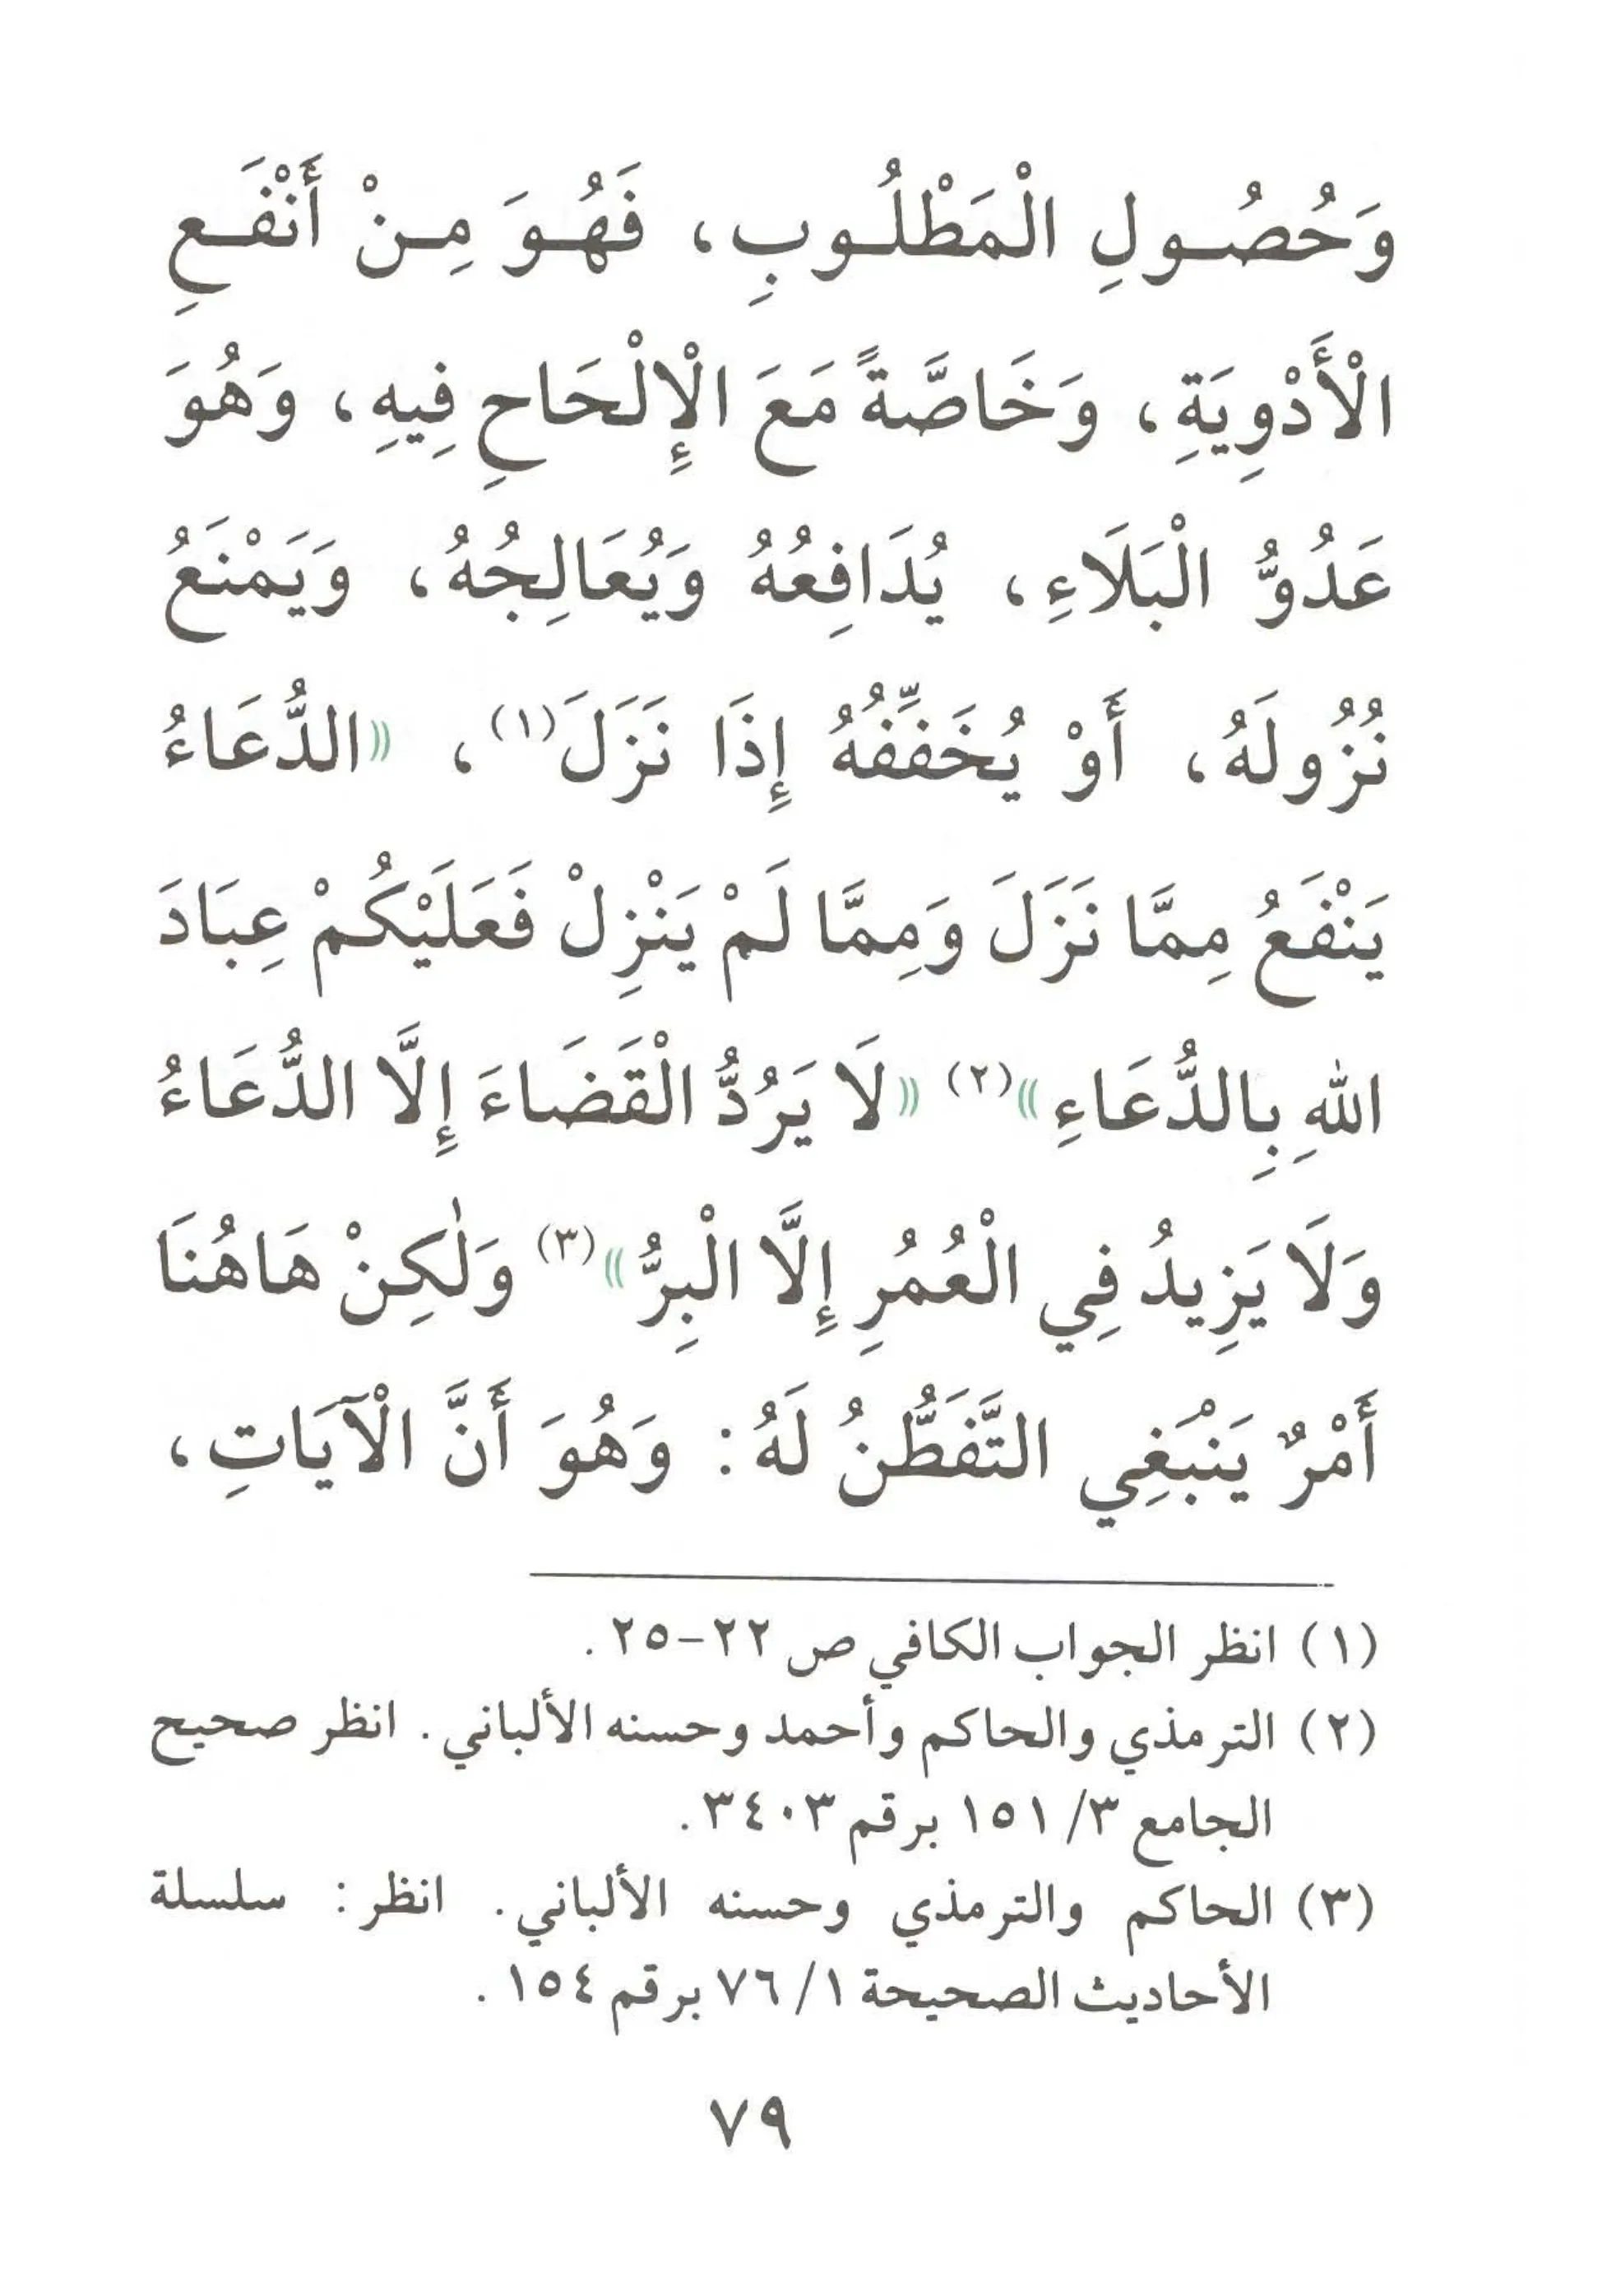 وَحُصُولِ الْمَطْلُوبِ، فَهُوَ مِنْ أَنْفَعِ
الْأَدْوِيَةِ، وَخَاصَّةً مَعَ الْإِلْحَاحِ فِيهِ، وَهُوَ
عَدُوُّ الْبَلَاءِ، يُدَافِعُهُ وَيُعَالِجُهُ، وَيَمْنَعُ
نُزُولَهُ، أَوْ يُخَفِّفُهُ إِذَا نَزَلَ(١)، «الدُّعَاءُ
يَنْفَعُ مِمَّا نَزَلَ وَمِمَّا لَمْ يَنْزِلْ فَعَلَيْكُمْ عِبَادَ
اللهِ بِالدُّعَاءِ»(٢) «لَا يَرُدُّ الْقَضَاءَ إِلَّا الدُّعَاءُ
وَلَا يَزِيدُ فِي الْعُمُرِ إِلَّا الْبِرُّ»(٣) وَلٰكِنْ هَاهُنَا
أَمْرٌ يَنْبَغِي التَّفَطُّنُ لَهُ: وَهُوَ أَنَّ الْآيَاتِ،
(١) انظر الجواب الكافي ص ٢٢-٢٥.
(٢) الترمذي والحاكم وأحمد وحسنه الألباني. انظر صحيح
الجامع ٣/ ١٥١ برقم ٣٤٠٣.
(٣) الحاكم والترمذي وحسنه الألباني. انظر: سلسلة
الأحاديث الصحيحة ١/ ٧٦ برقم ١٥٤.
٧٩